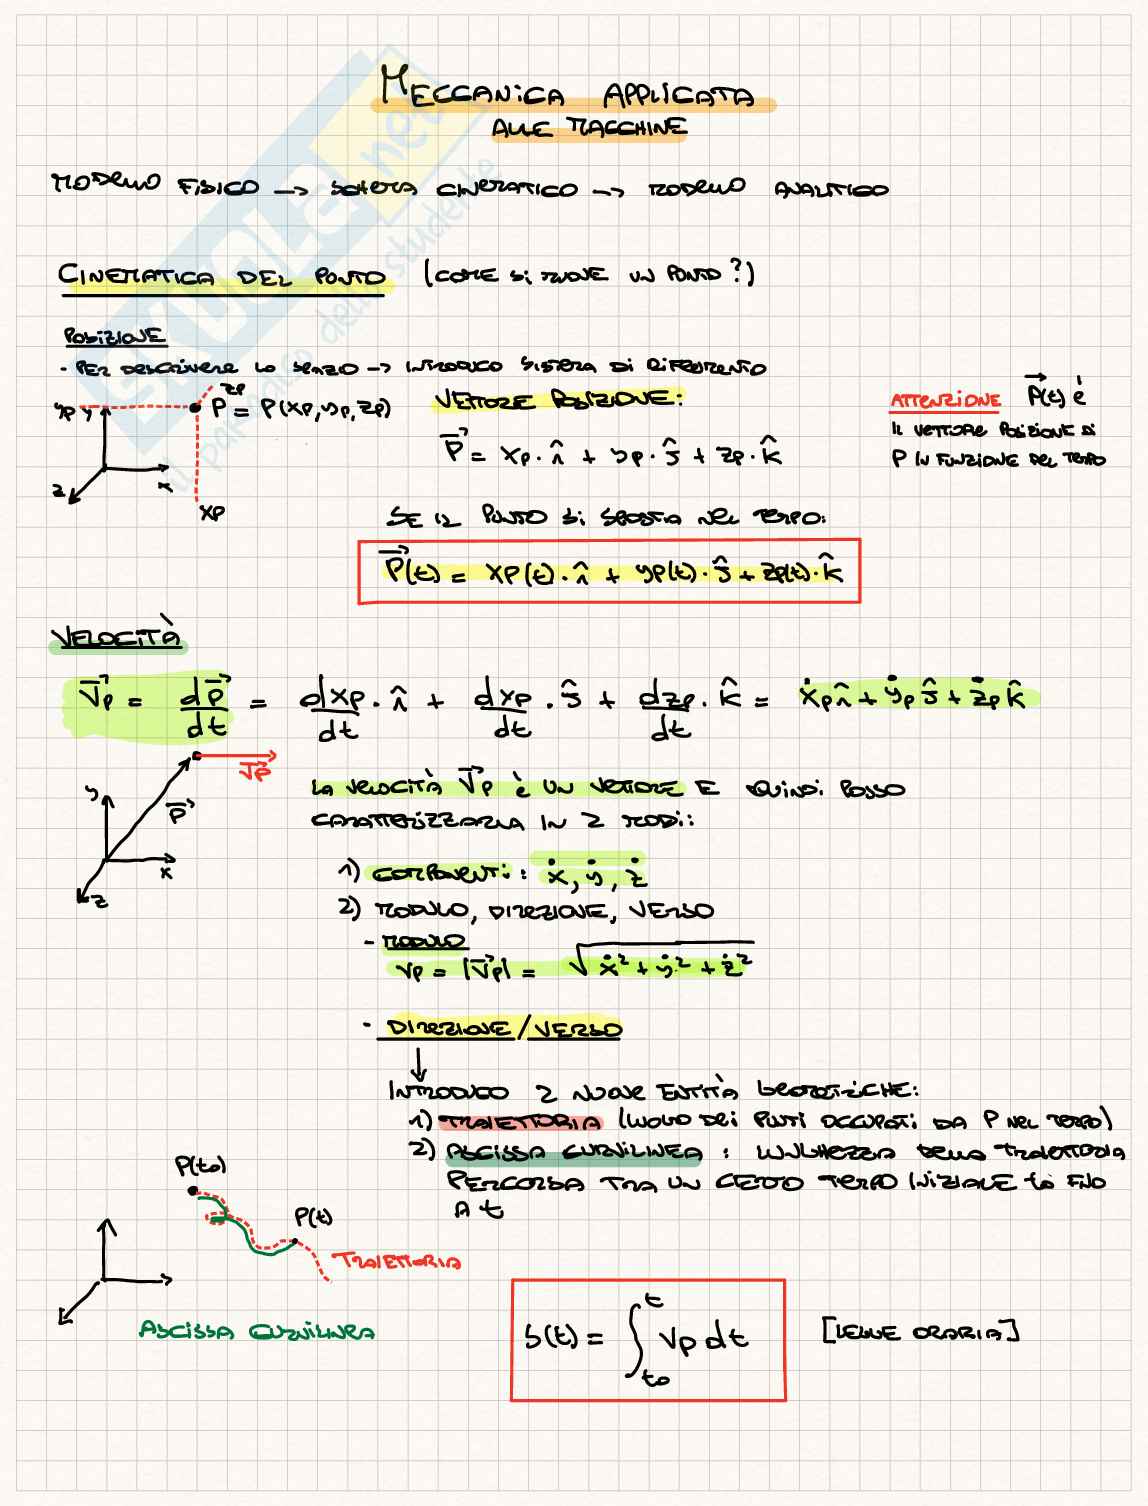 MECCANICA APPLICATA
ALLE MACCHINE
MODELLO FISICO → SCHEMA CINEMATICO → MODELLO ANALITICO
CINEMATICA DEL PUNTO (COME SI MUOVE UN PUNTO?)
POSIZIONE
- PER DESCRIVERE LO SPAZIO → INTRODUCO SISTEMA DI RIFERIMENTO
yp y zp P = P(xp, yp, zp) VETTORE POSIZIONE: ATTENZIONE P⃗(t) è
IL VETTORE POSIZIONE DI
P⃗ = xp·î + yp·ĵ + zp·k̂ P IN FUNZIONE DEL TEMPO
z x xp
SE IL PUNTO SI SPOSTA NEL TEMPO:
P⃗(t) = xp(t)·î + yp(t)·ĵ + zp(t)·k̂
VELOCITÀ
V⃗p = dP⃗/dt = dxp/dt·î + dxp/dt·ĵ + dzp/dt·k̂ = ẋpî + ẏpĵ + żpk̂
V⃗p
y P⃗ x z
LA VELOCITÀ V⃗p è UN VETTORE E QUINDI POSSO
CARATTERIZZARLA IN 2 MODI:
1) COMPONENTI: ẋ, ẏ, ż
2) MODULO, DIREZIONE, VERSO
- MODULO
vp = |V⃗p| = √(ẋ² + ẏ² + ż²)
- DIREZIONE/VERSO
↓
INTRODUCO 2 NUOVE ENTITÀ GEOMETRICHE:
1) TRAIETTORIA (LUOGO DEI PUNTI OCCUPATI DA P NEL TEMPO)
2) ASCISSA CURVILINEA: LUNGHEZZA DELLA TRAIETTORIA
PERCORSA TRA UN CERTO TEMPO INIZIALE t0 FINO
A t
P(t0)
P(t)
TRAIETTORIA
ASCISSA CURVILINEA
S(t) = ∫t0^t Vp dt [LEGGE ORARIA]
SKUOLA.net
il paradiso dello studente